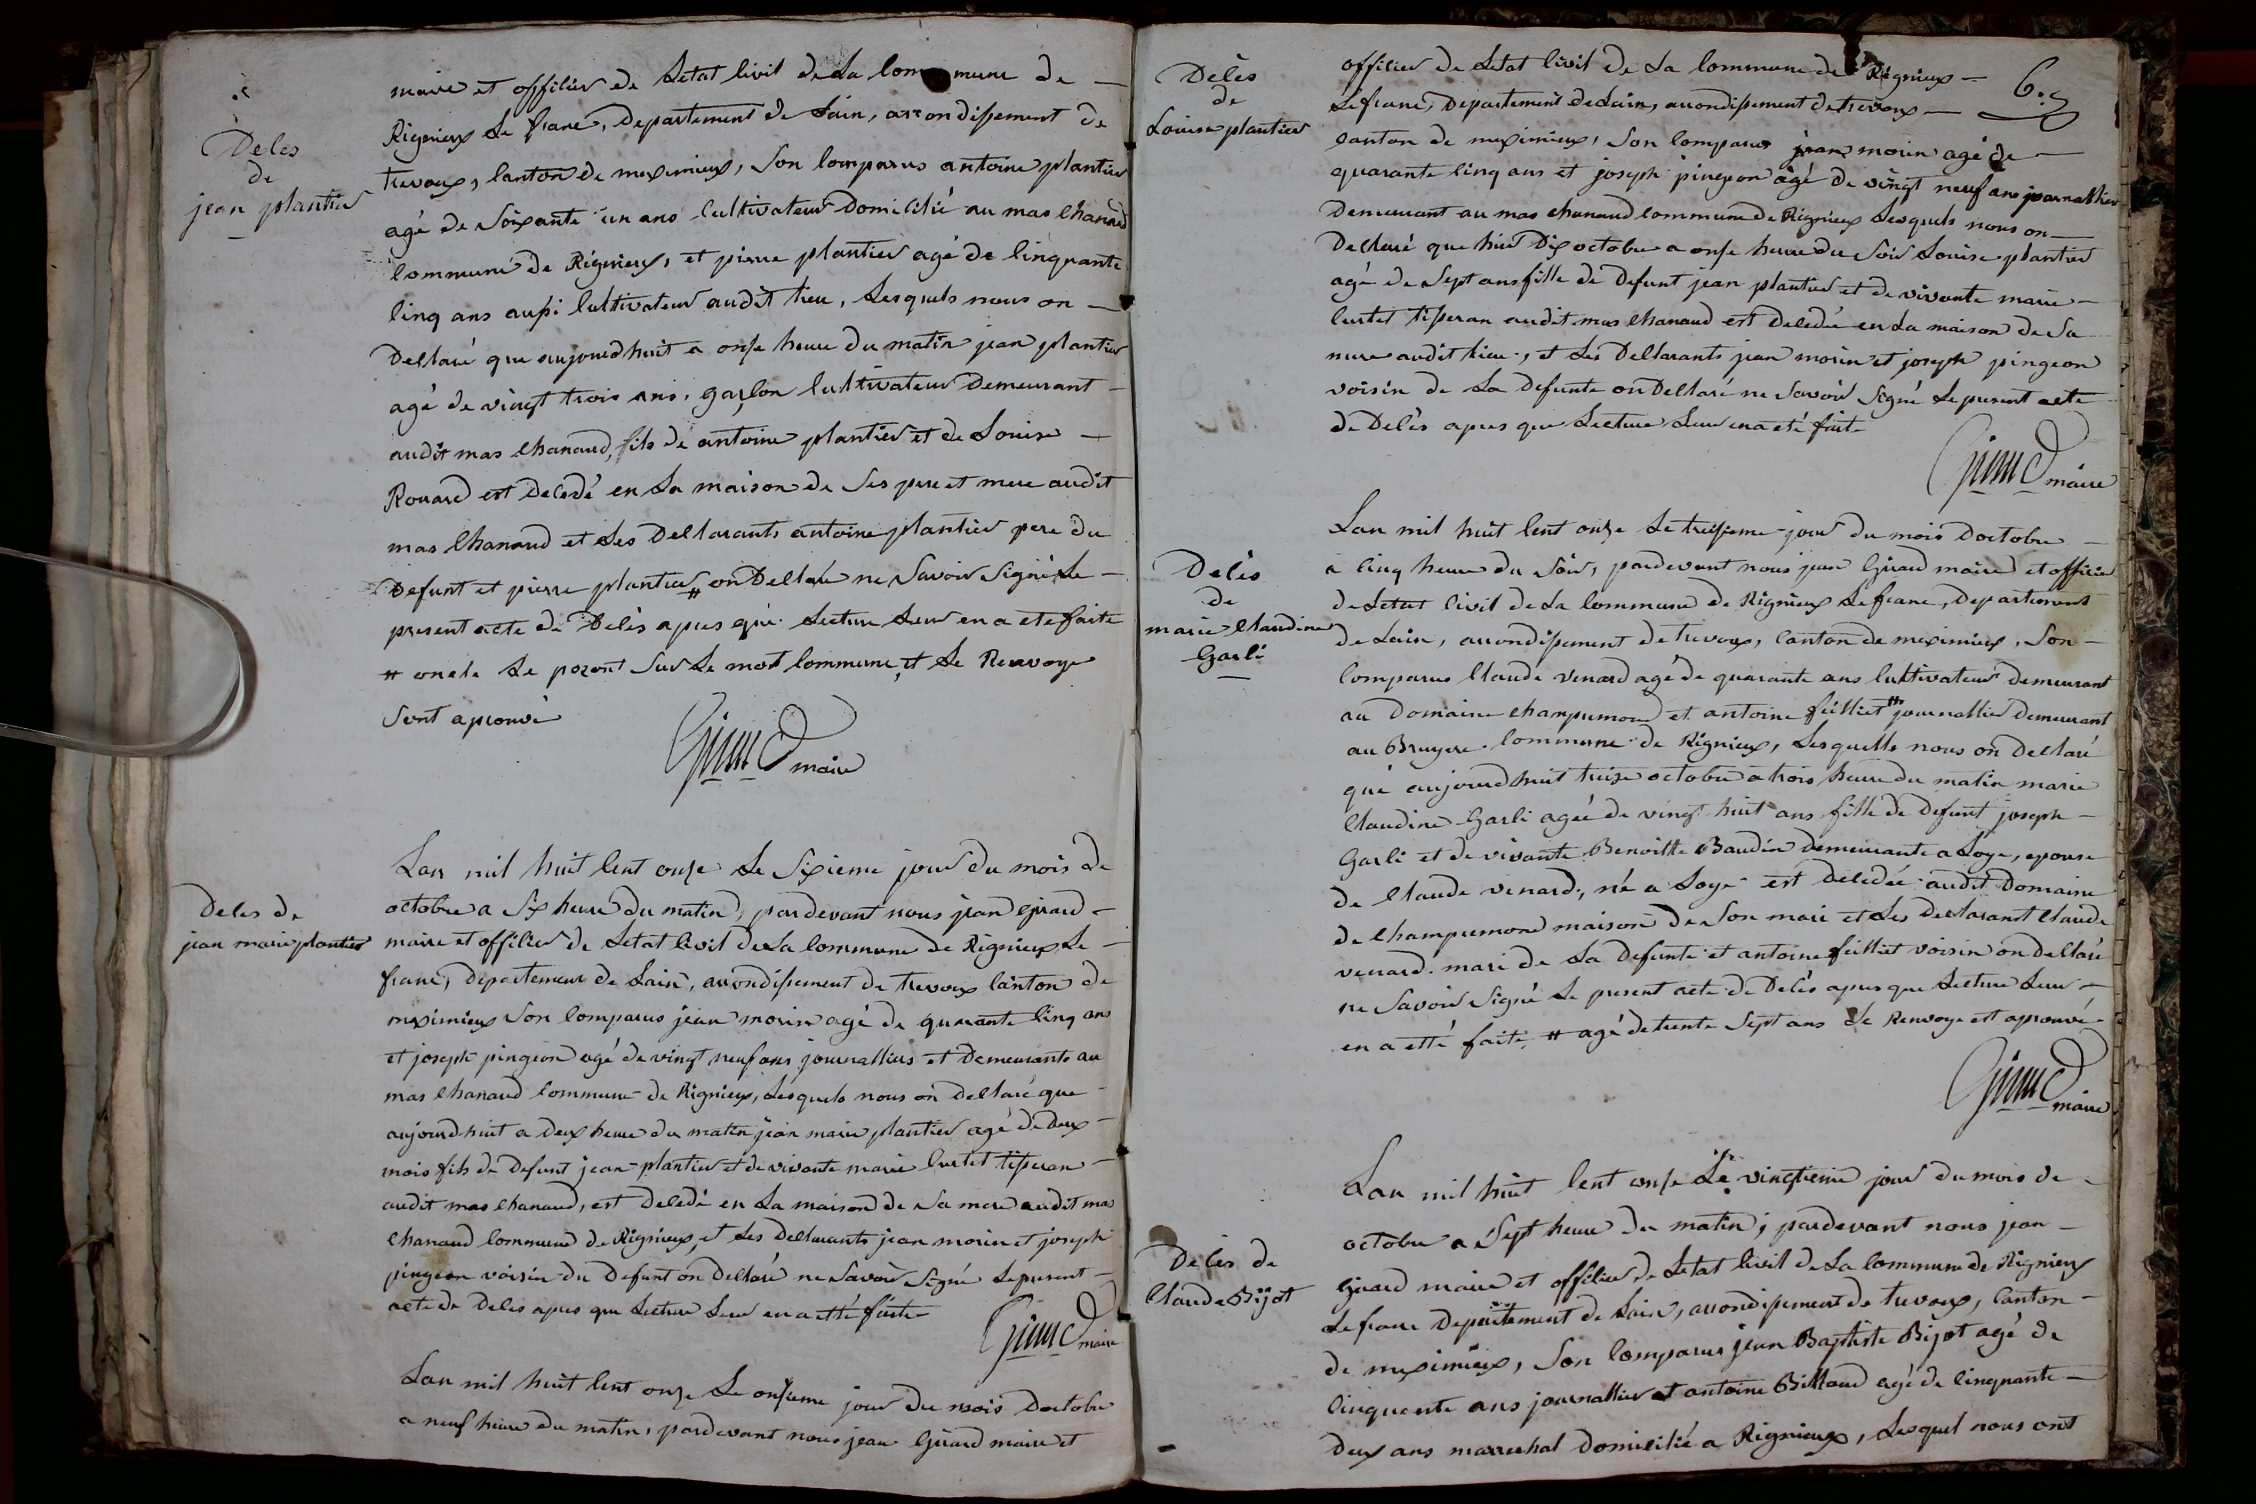 Deles
de
jean plantier
maire et officier de Letat Civil de La Commune de
Rignieux Le franc, Departement de Lain, arrondissement de
trevoux, Canton de meximieux, Son Comparus antoine plantier
agé de Soixante un ans Cultivateur Domicilié au mas Chanaud
Commune de Rignieux, et pierre plantier agé de Cinquante
Cinq ans aussi Cultivateur audit lieu, Lesquels nous on
Declaré que aujourdhuit a onze heure du matin jean plantier
agé de vingt trois ans, garçon Cultivateur Demeurant
audit mas Chanaud, fils de antoine plantier et de Louise
Rouard est Decedé en La maison de Ses pere et mere audit
mas Chanaud et Les Declarants antoine plantier pere du
Defunt et pierre plantier # on Declaré ne Savoir Signé Le
present acte de Delès apres que Lecture Leur en a eté faite
# oncle Le Sur Le mot Commune, et Le Renvoye
Sont aprouvé
Girard maire
Deles de
jean marie plantier
Lan mil huit Cent onze Le Sixieme jour du mois de
octobre a Six heure du matin, pardevant nous jean Girard
maire et officier de Letat Civil de La Commune de Rignieux Le
franc, departement de Lain, arrondissement de trevoux Canton de
meximieux Son Comparus jean morin agé de quarante Cinq ans
et joseph pingeon agé de vingt neuf ans journalliers et Demeurants au
mas Chanaud Commune de Rignieux, Lesquels nous on declaré que
aujourdhuit a Deux heure du matin jean marie plantier agé de deux
mois fils de Defunt jean plantier et de vivante marie Curtet tisseran
audit mas Chanaud, est Decedé en La maison de Sa mere audit mas
Chanaud Commune de Rignieux, et Les Declarants jean morin et joseph
pingeon voisin du Defunt on declaré ne Savoir Signé Le present
acte de Deles apres que Lecture Leur en a etté faite
Girard maire
Lan mil huit Cent onze Le onzieme jour du mois doctobre
a neuf heure du matin, pardevant nous jean Girard maire et
6.
Delès
de
Louise plantier
officier de Letat Civil de La Commune de Rignieux
Le franc, Departement de Lain, arrondissement de trevoux
Canton de meximieux, Son Comparus jean morin agé de
quarante Cinq ans et joseph pingeon agé de vingt neuf ans journallier
Demeurant au mas Chanaud Commune de Rignieux Lesquels nous on
Declaré que hier Dix octobre a onze heure du Soir Louise plantier
agé de Sept ans fille de Defunt jean plantier et de vivante marie
Curtet tisseran audit mas Chanaud est Decedée en La maison de Sa
mere audit lieu, et Les Declarants jean morin et joseph pingeon
voisin de La Defunte on Declaré ne Savoir Signé Le present acte
de Delès apres que Lecture Leur en a eté faite
Girard maire
Delès
de
marie Claudine
Garli
Lan mil huit Cent onze Le treisieme jour du mois doctobre
a Cinq heure du Soir, pardevant nous jean Girard maire et officier
de Letat Civil de La Commune de Rignieux Le franc, departement
de Lain, arrondissement de trevoux, Canton de meximieux, Son
Comparus Claude Venard agé de quarante ans Cultivateur demeurant
au Domaine Champremond et antoine feilliet # journallier Demeurant
au Bruyere Commune de Rignieux, Lesquelle nous on Declaré
que aujourdhuit treize octobre a trois heure du matin marie
Claudine Garli agée de vingt huit ans fille de Defunt joseph
Garli et de vivante Benoitte Baudin demeurante a Loye, epouse
de Claude venard, né a Loye est decedée audit Domaine
de Champremond maison de Son mari et Les Declarant Claude
venard mari de La Defunte et antoine feilliet voisin on declaré
ne Savoir Signé Le present acte de Delès apres que Lecture Leur
en a etté faite, # agé de trente Sept ans Le Renvoye est aprouvé
Girard maire
Delès de
Claude Bijot
Lan mil huit Cent onze Le vingtieme jour du mois de
octobre a Sept heure du matin, pardevant nous jean
Girard maire et officier de Letat Civil de La Commune de Rignieux
Le franc Departement de Lain, arrondissement de trevoux, Canton
de meximieux, Son Comparus jean Baptiste Bijot agé de
Cinquante ans journallier et antoine Billaud agé de Cinquante
Deux ans marechal Domicilié a Rignieux, Lesquel nous ont